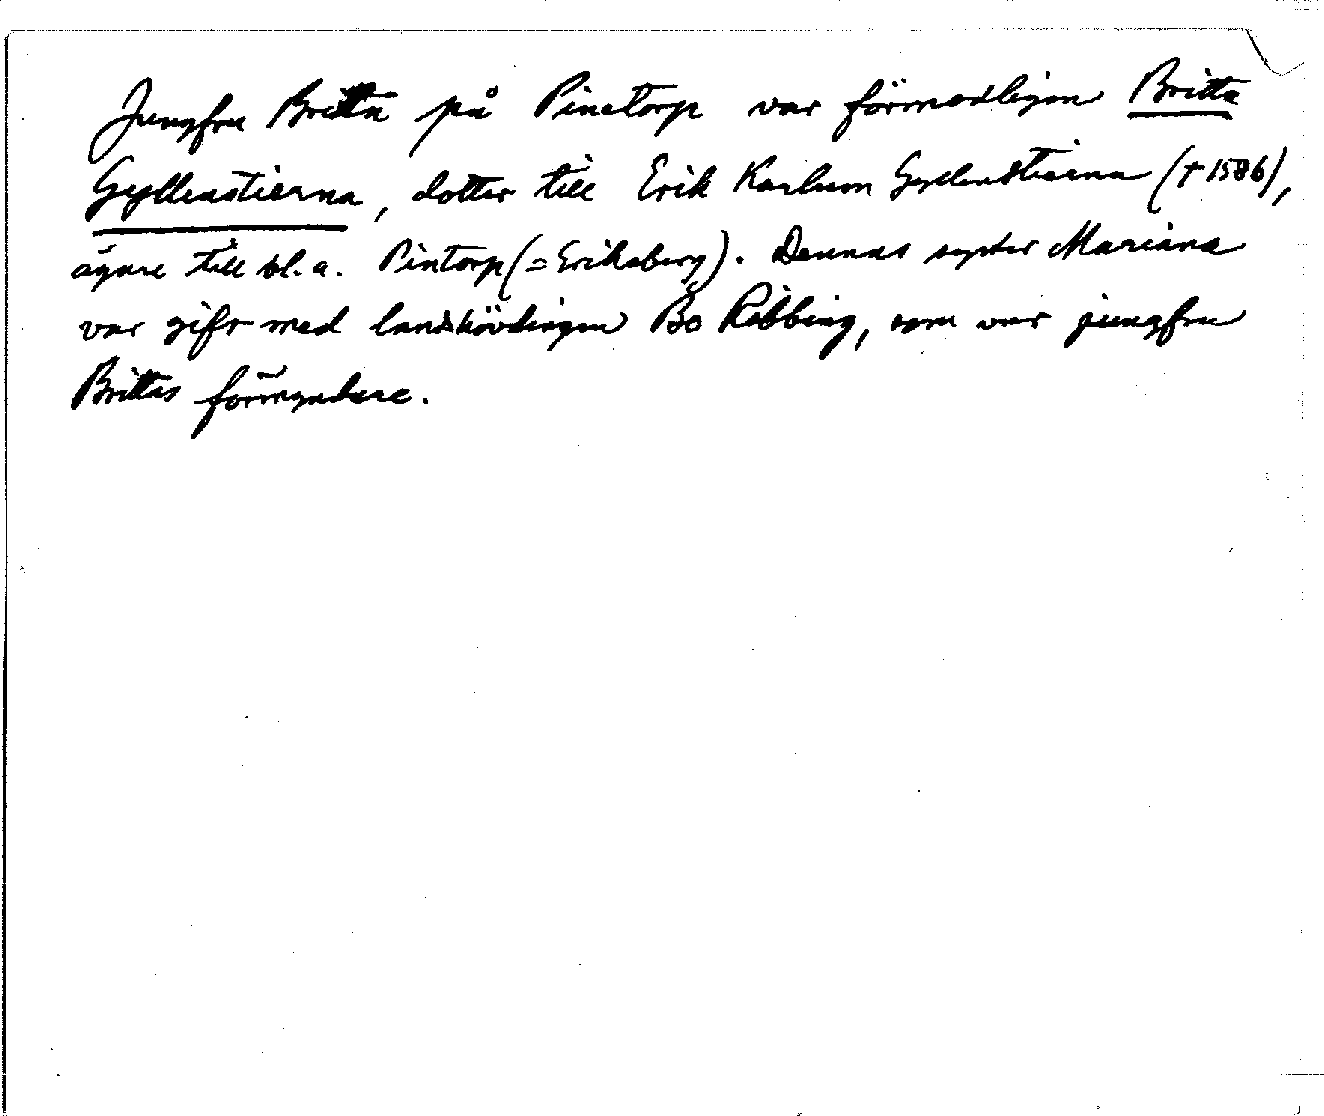 Jungfru Britta på Pinetorp var förmodligen Britta
Gyllenstierna, dotter till Erik Karlsson Gyllenstierna († 1586),
ägare till bl.a. Pintorp (= Eriksberg). Dennas syster Mariana
var gift med landshövdingen Bo Ribbing, som var jungfru
Brittas förmyndare.